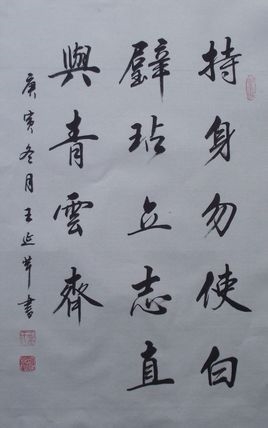 持身勿使白
璧玷立志直
與青雲齊
庚寅冬月王延革書